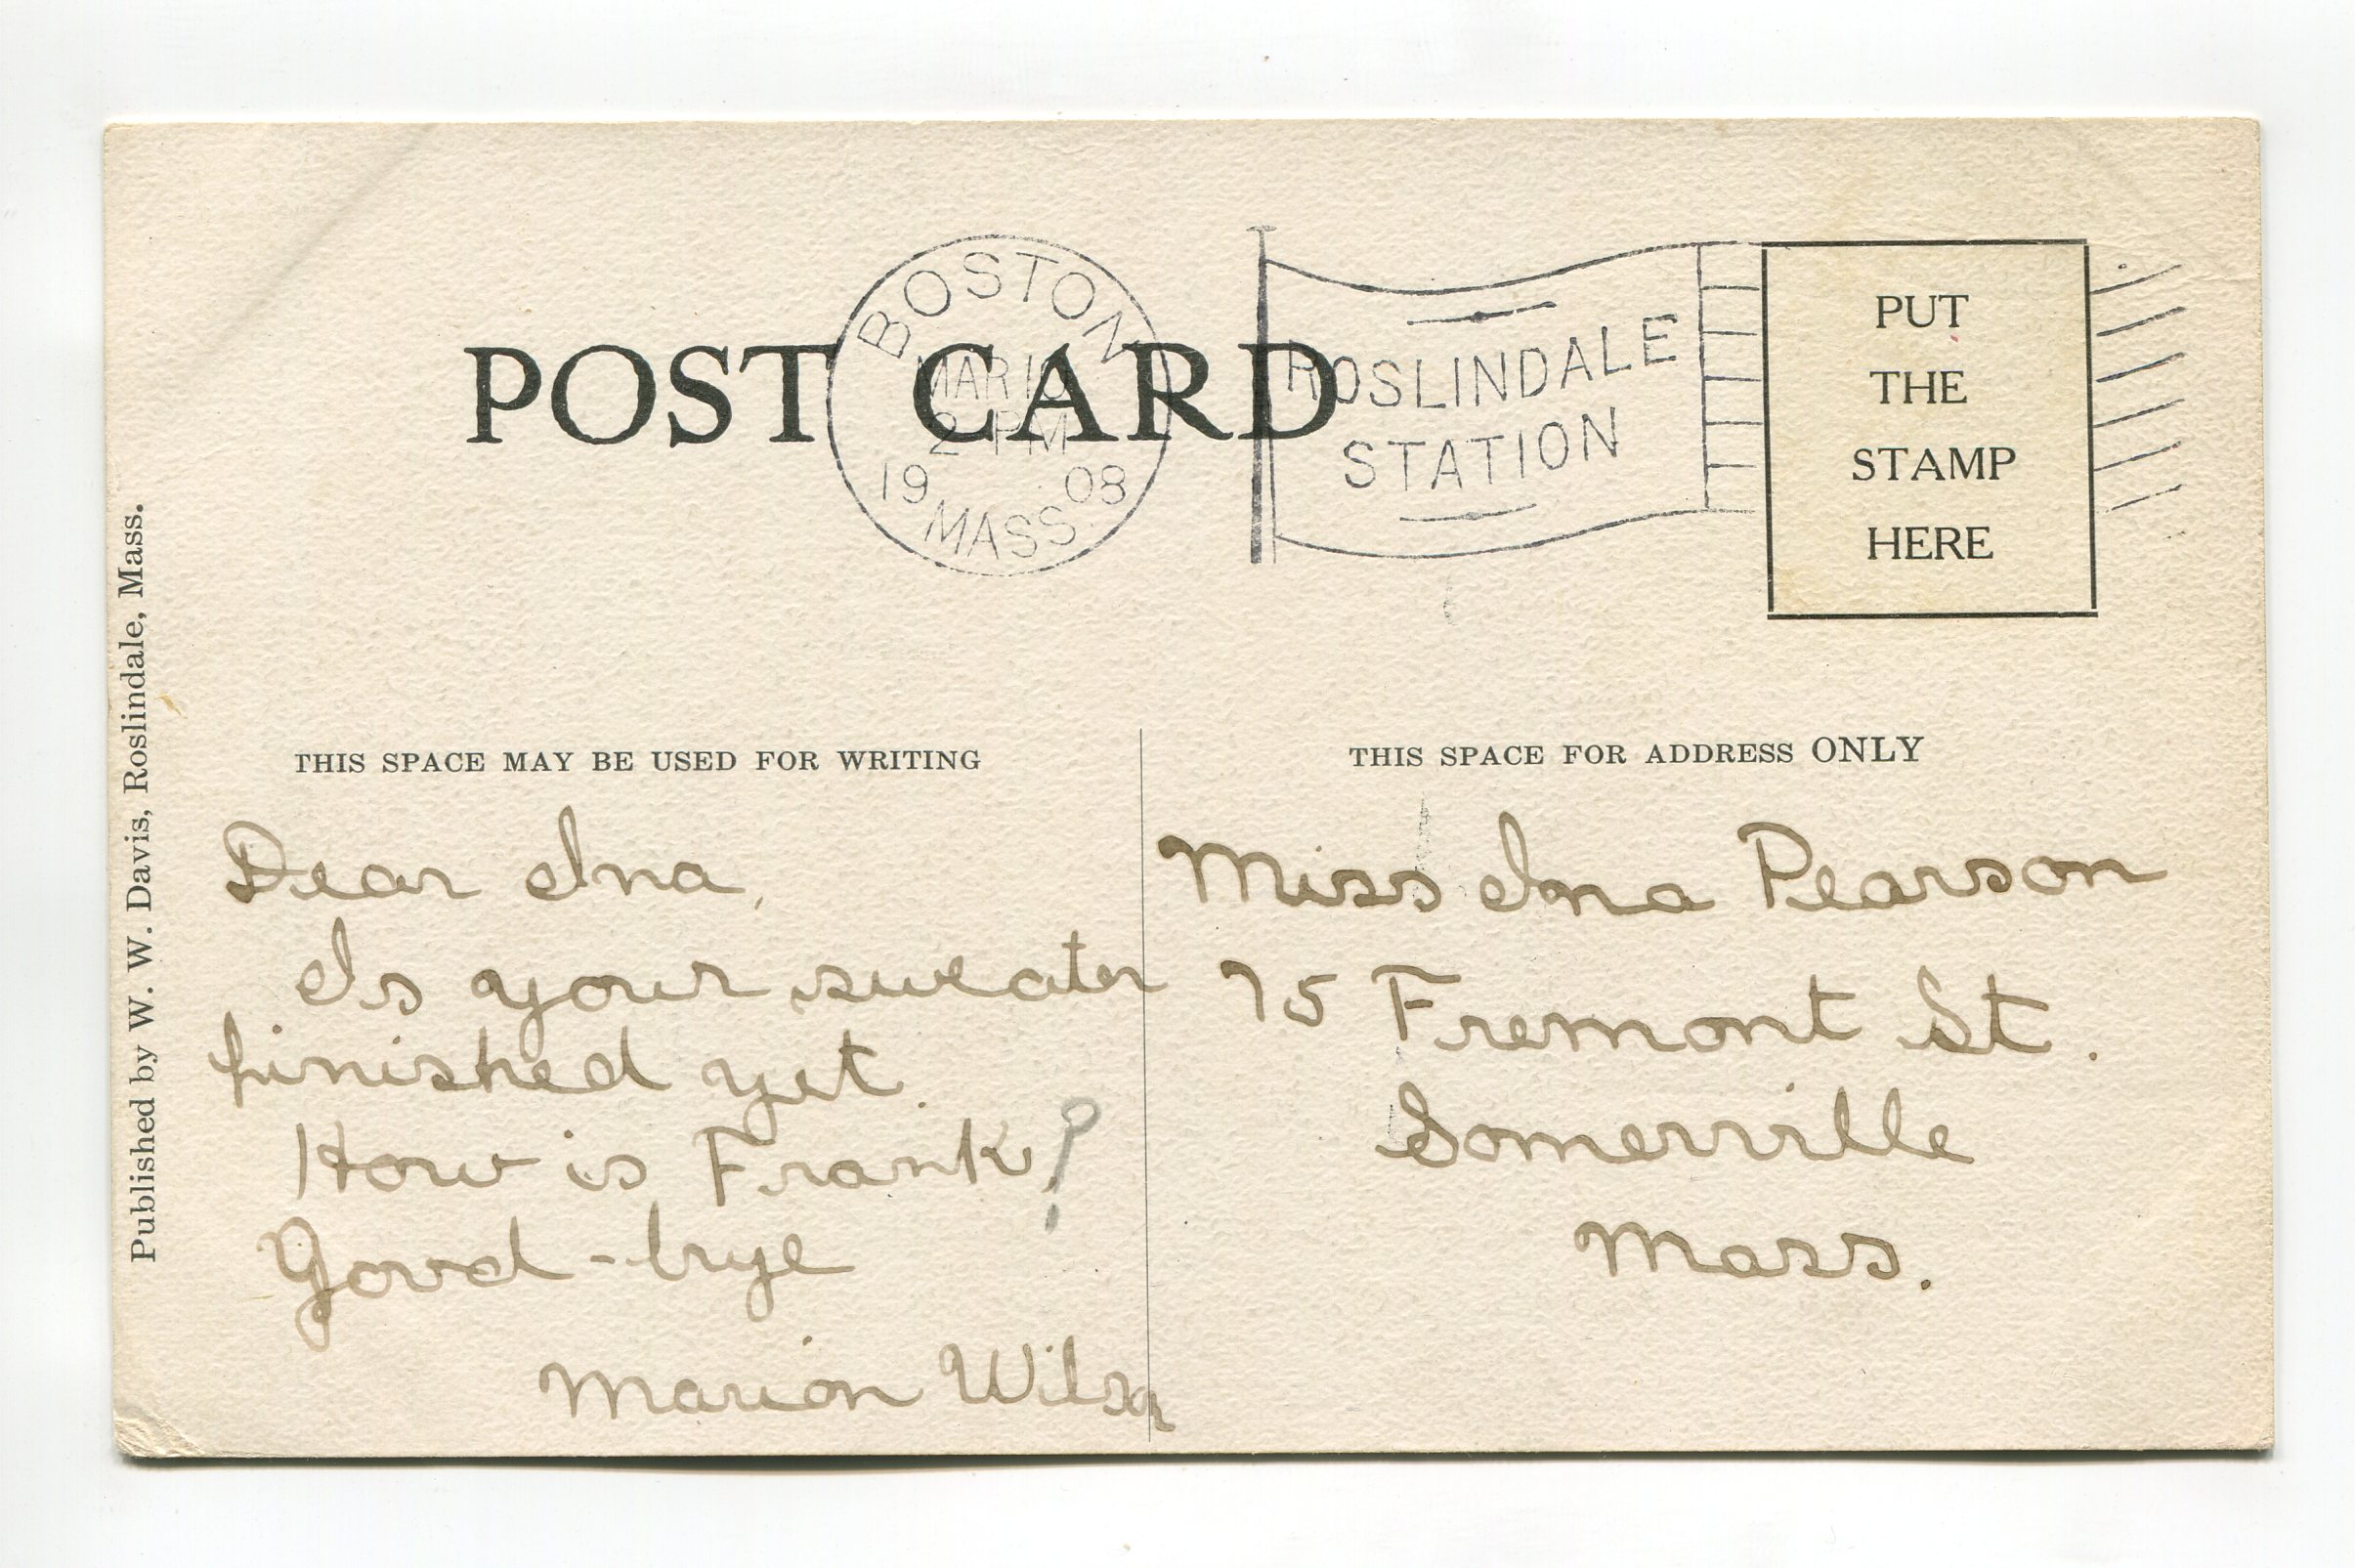 POST CARD
BOSTON
2 PM
19 08
MASS.
ROSLINDALE
STATION
PUT
THE
STAMP
HERE
Published by W. W. Davis, Roslindale, Mass.
THIS SPACE MAY BE USED FOR WRITING
Dear Ina,
Is your sweater
finished yet.
How is Frank?
Good-bye
Marion
THIS SPACE FOR ADDRESS ONLY
Miss Ina Pearson
75 Fremont St.
Somerville
Mass.